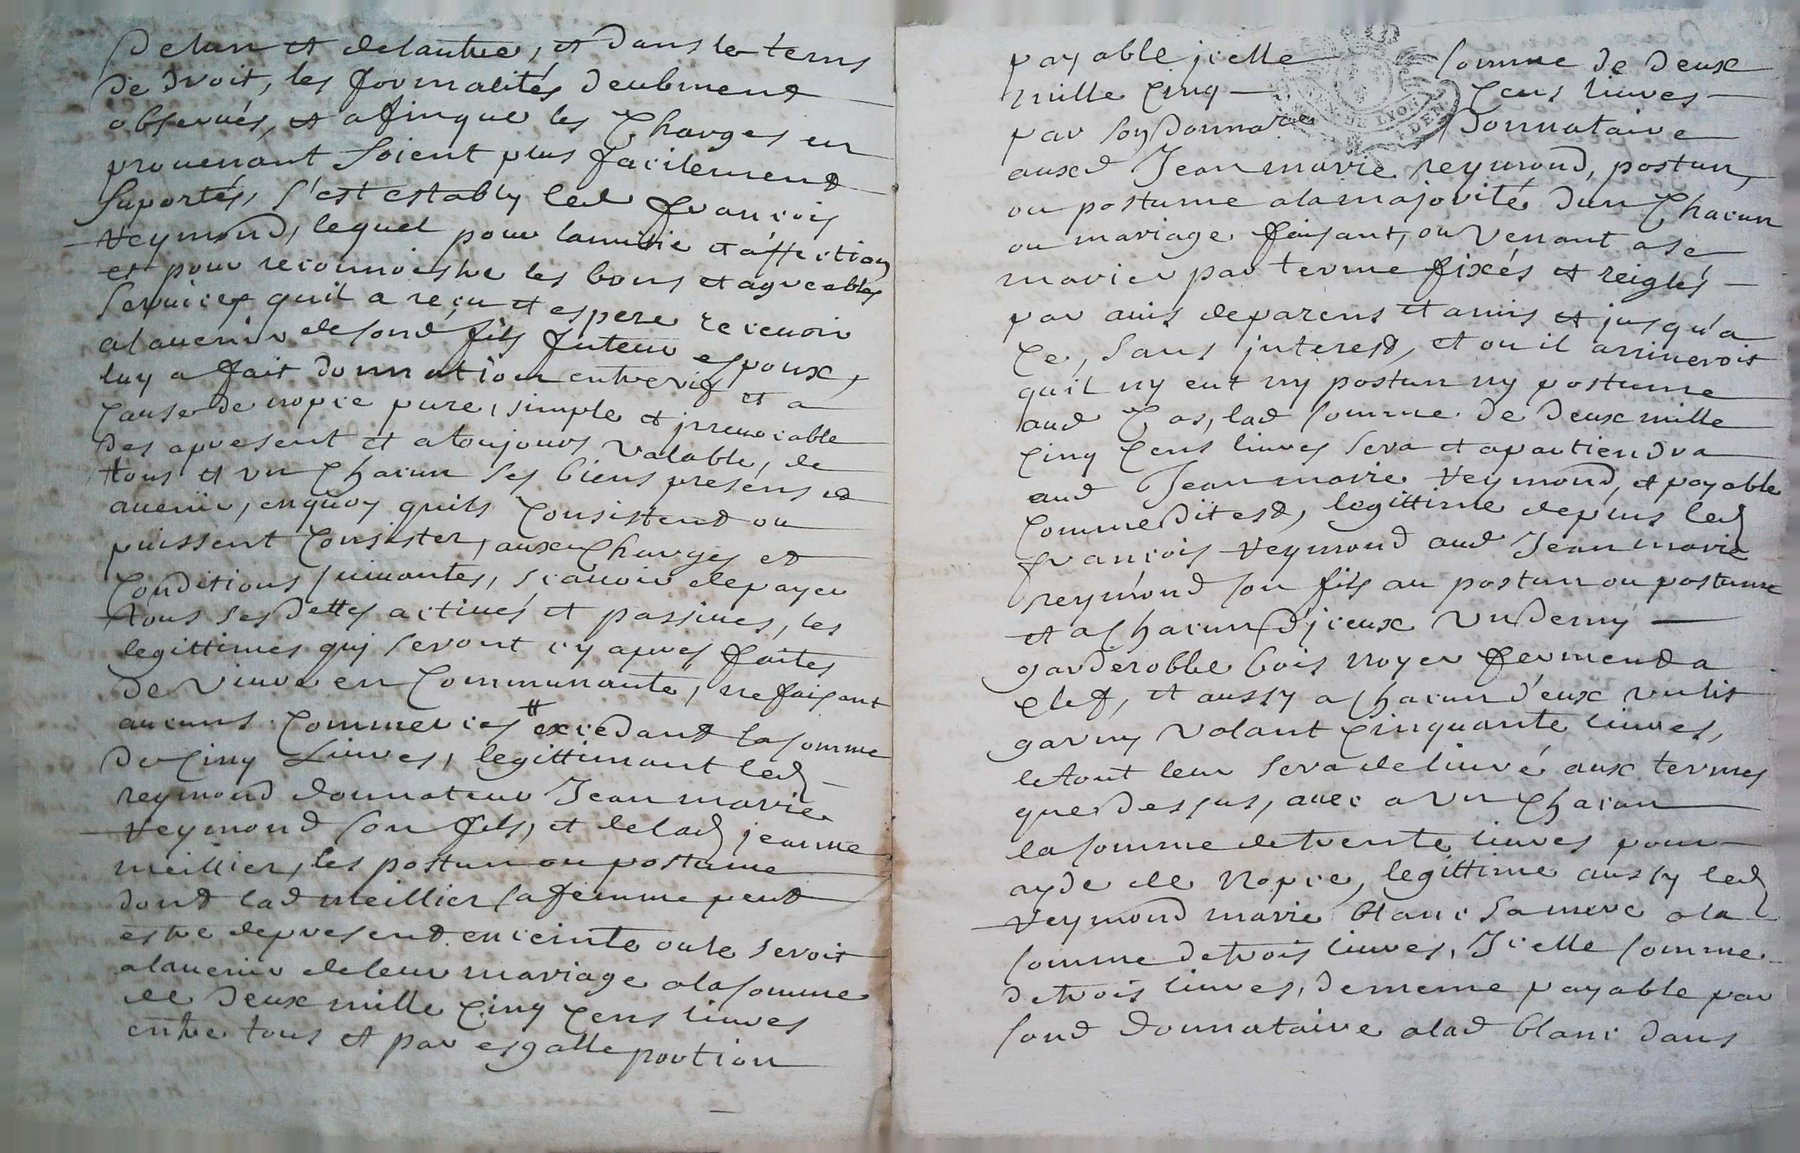 Delun et delautre, et dans le tems
de droit, les formalités deubment
observés, et afinque les Charges en
prouenant soient plus facilement
suportés, s'est estably led françois
reymond, lequel pour lamitié et affection
et pour reconnoistre les bons et agreables
services quil a reçu et espere recevoir
alauenir desond fils futeur espoux,
luy a fait donnation entrevif et a
Cause de nopce pure, simple et jrreuocable
des apresent et atoujours valable, de
tous et vn Chacun ses biens presens et
auenir, enquoy quils Consistent ou
puissent Consister, aux Charges et
Conditions suiuantes, scauoir depayer
tous ses dettes actiues et passiues, les
legittimes qui seront cy apres faites
de viure en Communauté, ne faisant
aucuns Commerces excedant la somme
de Cinq Liures, legittimant led
reymond donnateur Jean marie
reymond son fils, et delad jeanne
meillier, les postun ou postume
dont lad meillier sa femme peut
estre depresent enceinte oule seroit
alauenir deleur mariage alasomme
de deux mille Cinq Cens liures
entre tous et par esgalle portion
payable jcelle somme de deux
mille Cinq Cens liures
par son donnataire Donnataire
auxd Jean marie reymond, postun,
ou postume alamajorité dun Chacun
ou mariage faisant, ou venant ase
marier par terme fixés et reiglés
par auis deparens et amis et jusqu'a
Ce, sans jnterest, et ou il arriueroit
quil ny eut ny postun ny postume
aud Cas, lad somme de deux mille
Cinq Cens liures sera et apartiendra
aud Jean marie reymond, et payable
Comme dit est, legittime depuis led
françois reymond aud Jean marie
reymond son fils au postun ou postume
et a Chacun djceux vn demy
garderobbe bois noyer fermant a
Clef, et aussy a Chacun d'eux vn lit
garny valant Cinquante liures,
letout leur sera deliuré aux termes
que dessus, auec a vn Chacun
la somme detrente liures pour
ayde de nopce, legittime aussy led
reymond marie blanc sa mere a la
somme detrois liures, Jcelle somme
detrois liures, dememe payable par
sond donnataire alad blanc dans